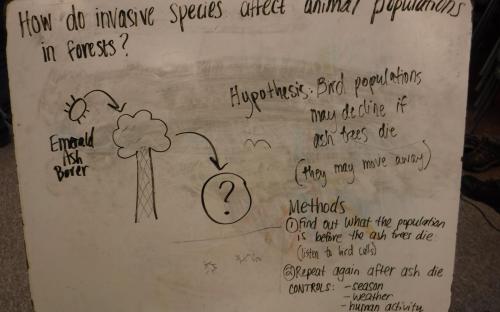 How do invasive species affect animal populations
in forests?
Emerald
Ash
Borer
?
Hypothesis: Bird populations
may decline if
ash trees die
(they may move away)
Methods
① Find out what the population
is before the ash trees die
(listen to bird calls)
② Repeat again after ash die
CONTROLS: - season
- weather
- human activity